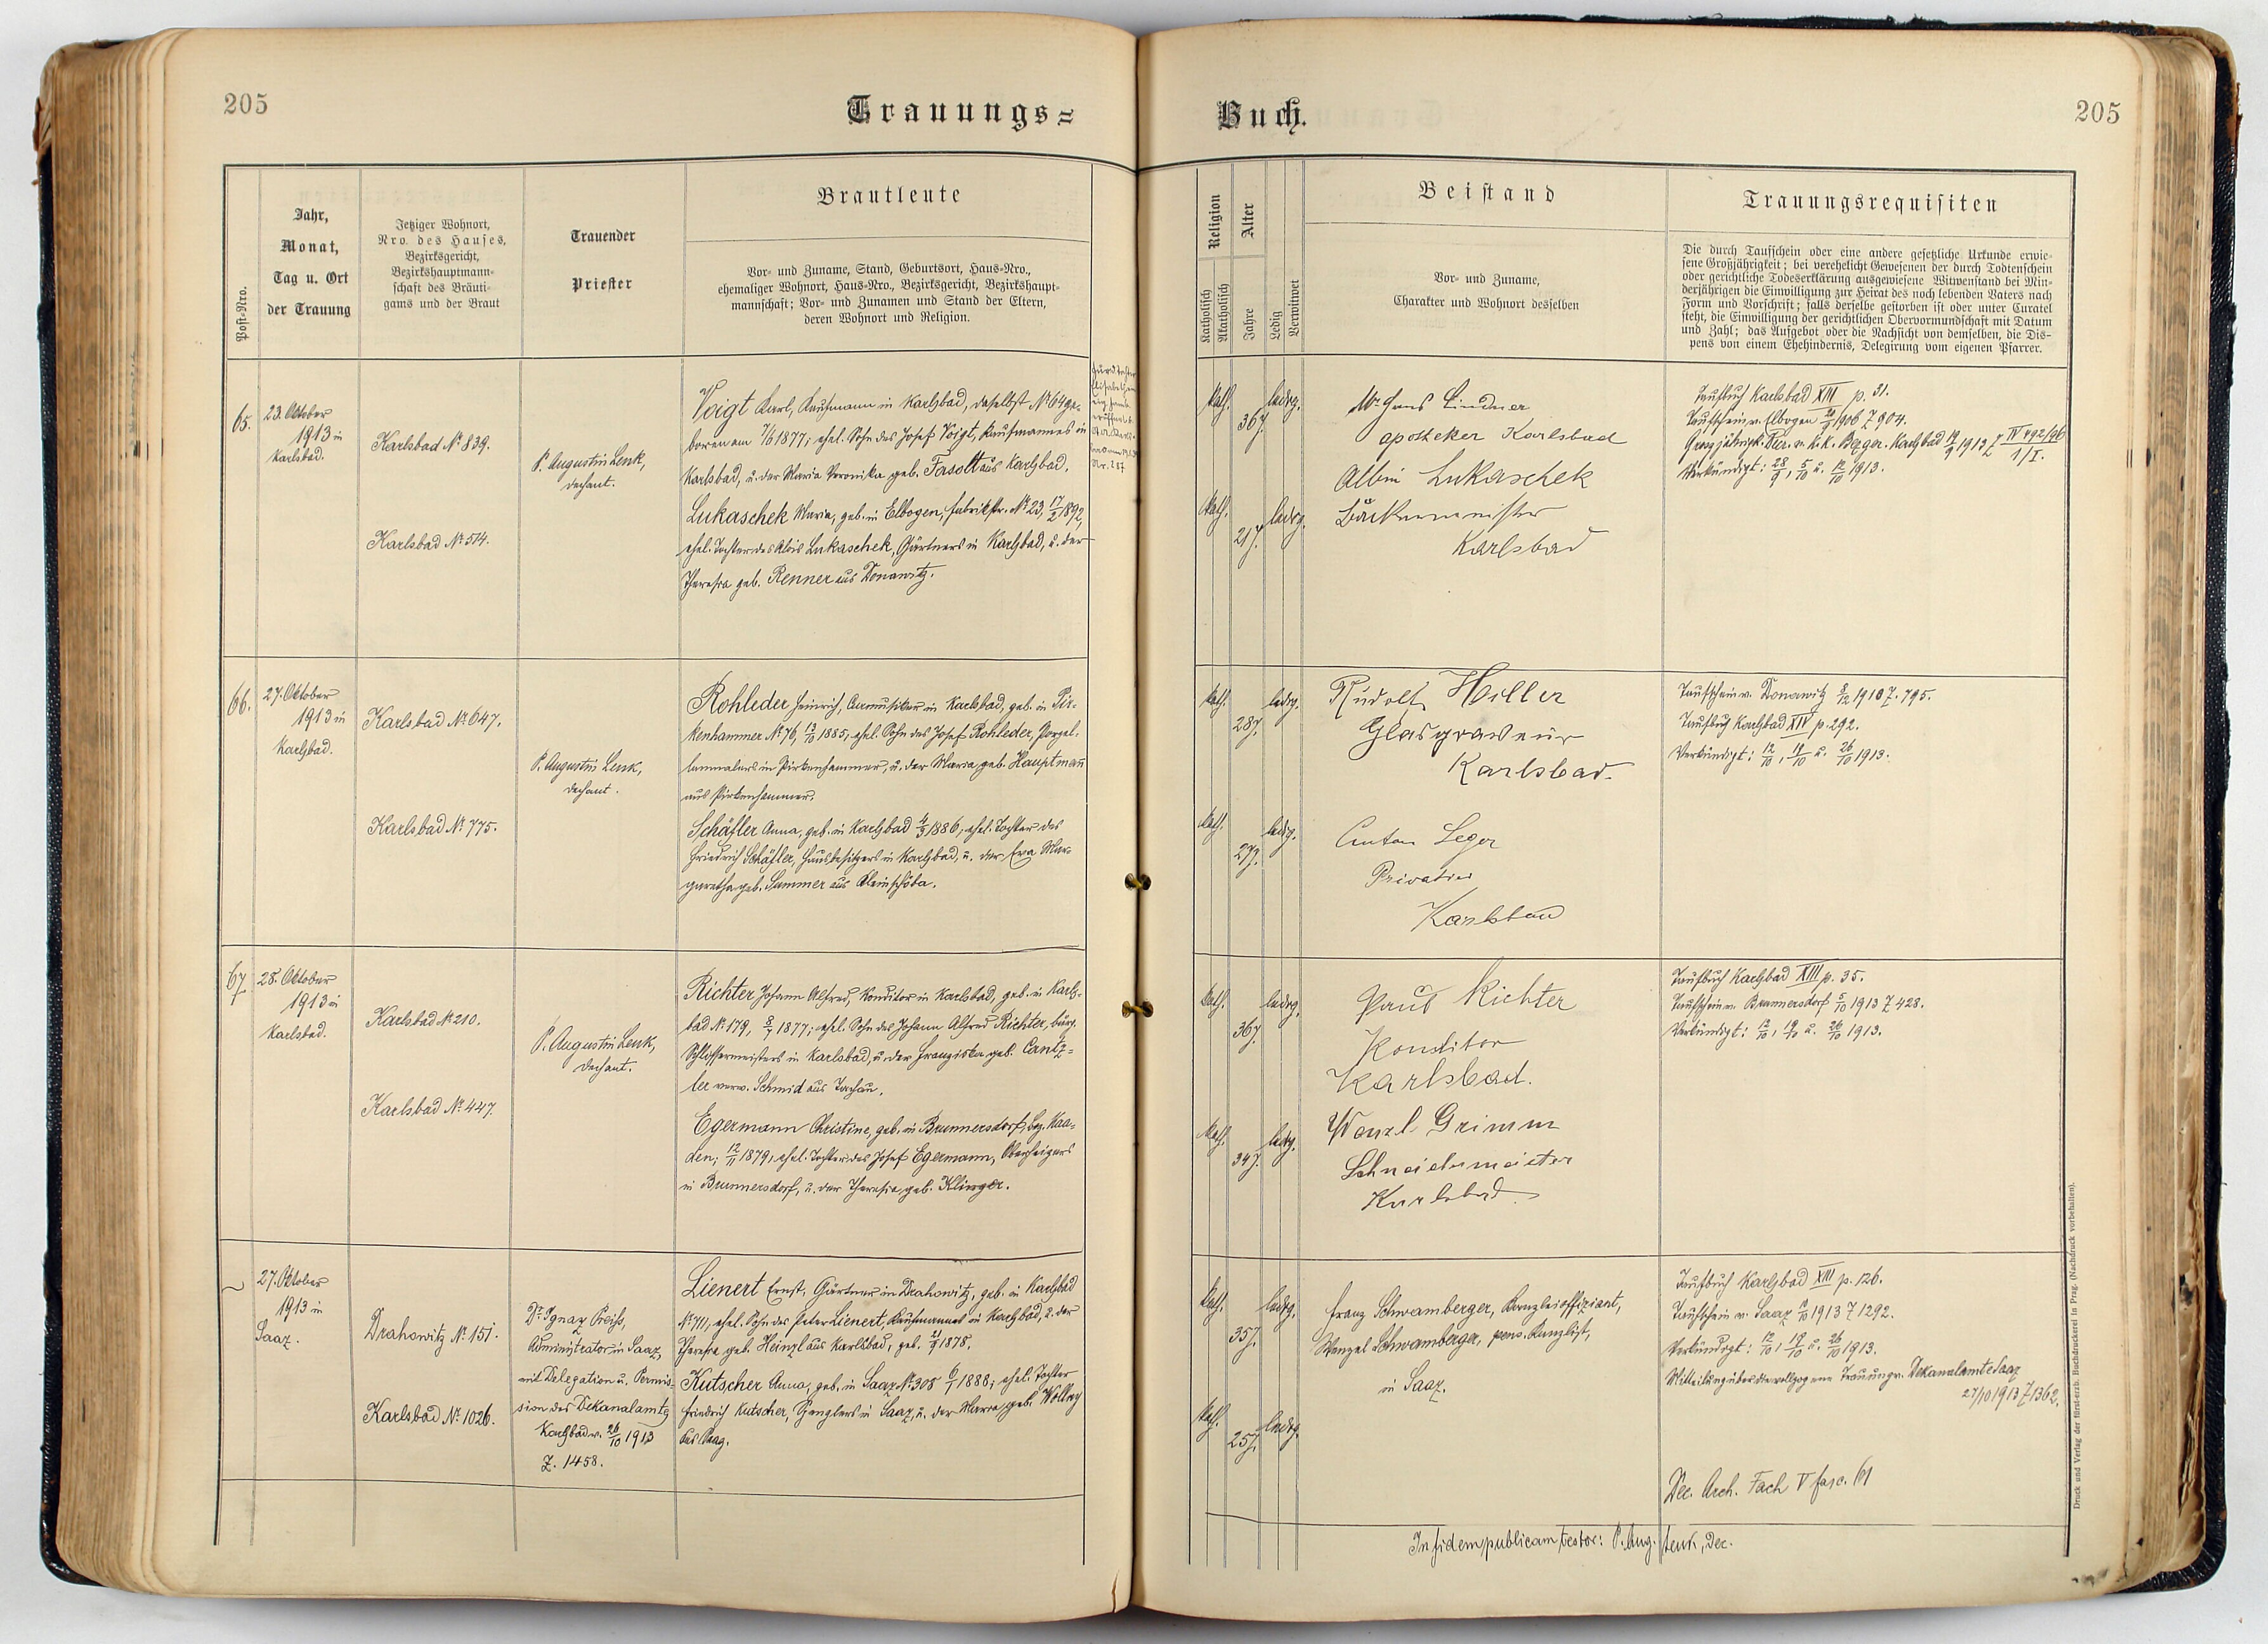 205
Trauungs=
Buch.
205
Post=Nro.
Jahr,
Monat,
Tag u. Ort
der Trauung
Jetziger Wohnort,
Nro. des Hauses,
Bezirksgericht,
Bezirkshauptmann=
schaft des Bräuti=
gams und der Braut
Trauender
Priester
Brautleute
Vor= und Zuname, Stand, Geburtsort, Haus=Nro.,
ehemaliger Wohnort, Haus=Nro., Bezirksgericht, Bezirkshaupt=
mannschaft; Vor= und Zunamen und Stand der Eltern,
deren Wohnort und Religion.
Religion
Katholisch
Akatholisch
Alter
Jahre
Ledig
Verwitwet
Beistand
Vor= und Zuname,
Charakter und Wohnort desselben
Trauungsrequisiten
Die durch Taufschein oder eine andere gesetzliche Urkunde erwie=
sene Großjährigkeit; bei verehelicht Gewesenen der durch Todtenschein
oder gerichtliche Todeserklärung ausgewiesene Witwenstand bei Min=
derjährigen die Einwilligung zur Heirat des noch lebenden Vaters nach
Form und Vorschrift; falls derselbe gestorben ist oder unter Curatel
steht, die Einwilligung der gerichtlichen Obervormundschaft mit Datum
und Zahl; das Aufgebot oder die Nachsicht von demselben, die Dis=
pens von einem Ehehindernis, Delegirung vom eigenen Pfarrer.
65.
23. Oktober
1913 in
Karlsbad.
Karlsbad No 839.
Karlsbad No 514.
P. Augustin Lenk,
Dechant.
Voigt Karl, Kaufmann in Karlsbad, daselbst No 64 ge=
boren am 7/6 1877; ehel. Sohn des Josef Voigt, Kaufmannes in
Karlsbad, u. der Maria Veronika geb. Fasolt aus Karlsbad.
Lukaschek Maria, geb. in Elbogen, Fabrikstr. No 23, 17/2 1892,
ehel. Tochter des Alois Lukaschek, Gärtners in Karlsbad, u. der
Theresia geb. Renner aus Donawitz.
Nr. 287
kath.
36 J.
ledig.
kath.
21 J.
ledig.
Mr. Hans Lindner
Apotheker Karlsbad
Albin Lukaschek
Bäckermeister
Karlsbad
Taufbuch Karlsbad XIII p. 31.
Taufschein v. Elbogen 1906 Z 904.
Verkündigt: 28/9, 5/10 u. 12/10 1913.
66.
27. Oktober
1913 in
Karlsbad.
Karlsbad No 647.
Karlsbad No 775.
P. Augustin Lenk,
Dechant.
Rohleder Heinrich, Kurmusiker in Karlsbad, geb. in Pir=
kenhammer No 76, 13/10 1885, ehel. Sohn des Josef Rohleder, Porzel=
lanmalers in Pirkenhammer, u. der Maria geb. Hauptmann
aus Pirkenhammer.
Schäfler Anna, geb. in Karlsbad 4/3 1886, ehel. Tochter des
Friedrich Schäfler, Hausbesitzers in Karlsbad, u. der Eva Mar=
garetha geb. Summer aus Kleinschöba.
kath.
28 J.
ledig.
kath.
27 J.
ledig.
Rudolf Hiller
Glasgraveur
Karlsbad.
Anton Leger
Privatier
Karlsbad
Taufschein v. Donawitz 8/12 1910 Z. 795.
Taufbuch Karlsbad XIV p. 292.
Verkündigt: 12/10, 19/10 u. 26/10 1913.
67
28. Oktober
1913 in
Karlsbad.
Karlsbad No 210.
Karlsbad No 447.
P. Augustin Lenk,
Dechant.
Richter Johann Alfred, Konditor in Karlsbad, geb. in Karls=
bad No 179, 8/7 1877; ehel. Sohn des Johann Alfred Richter, bürg.
Schlossermeisters in Karlsbad, u. der Franziska geb. Cantz=
ler verw. Schmid aus Tachau.
Egermann Christine, geb. in Brunnersdorf, Bez. Kaa=
den, 12/11 1879, ehel. Tochter des Josef Egermann, Oberheizers
in Brunnersdorf, u. der Theresia, geb. Klinger.
kath.
36 J.
ledig.
kath.
34 J.
ledig.
Paul Richter
Konditor
Karlsbad.
Wenzl Grimm
Schneidermeister
Karlsbad.
Taufbuch Karlsbad XIII p. 35.
Taufschein v. Brunnersdorf 5/10 1913 Z 428.
Verkündigt: 12/10, 19/10 u. 26/10 1913.
27. Oktober
1913 in
Saaz.
Drahowitz No 151.
Karlsbad No 1026.
Dr. Ignaz Preiß,
Administrator in Saaz,
mit Delegation u. Permis=
sion des Dekanalamtes
Karlsbad v. 26/10 1913
Z. 1458.
Lienert Ernst, Gärtner in Drahowitz, geb. in Karlsbad
No 711, ehel. Sohn des Peter Lienert, Kaufmannes in Karlsbad, u. der
Theresia geb. Heinzl aus Karlsbad, geb. 21/9 1878.
Kutscher Anna, geb. in Saaz No 308 6/1 1888; ehel. Tochter
Friedrich Kutscher, Spenglers in Saaz, u. der Maria, geb.
aus Prag.
kath.
35 J.
ledig.
kath.
25 J.
ledig.
Franz Schwamberger, Kanzleioffiziant,
Wenzel Schwamberger, pens. Kanzlist,
in Saaz.
Taufbuch Karlsbad XIII p. 126.
Taufschein v. Saaz 1913 Z 1292.
Verkündigt: 12/10, 19/10 u. 26/10 1913.
Mitteilung über die vollzogene Trauung v. Dekanalamte Saaz
27/10 1913 Z 1362.
Dec. Arch. Fach V fasc. 61
In fidem publicam testor: P. Aug. Lenk, Dec.
Druck und Verlag der fürst-erzb. Buchdruckerei in Prag. (Nachdruck vorbehalten).